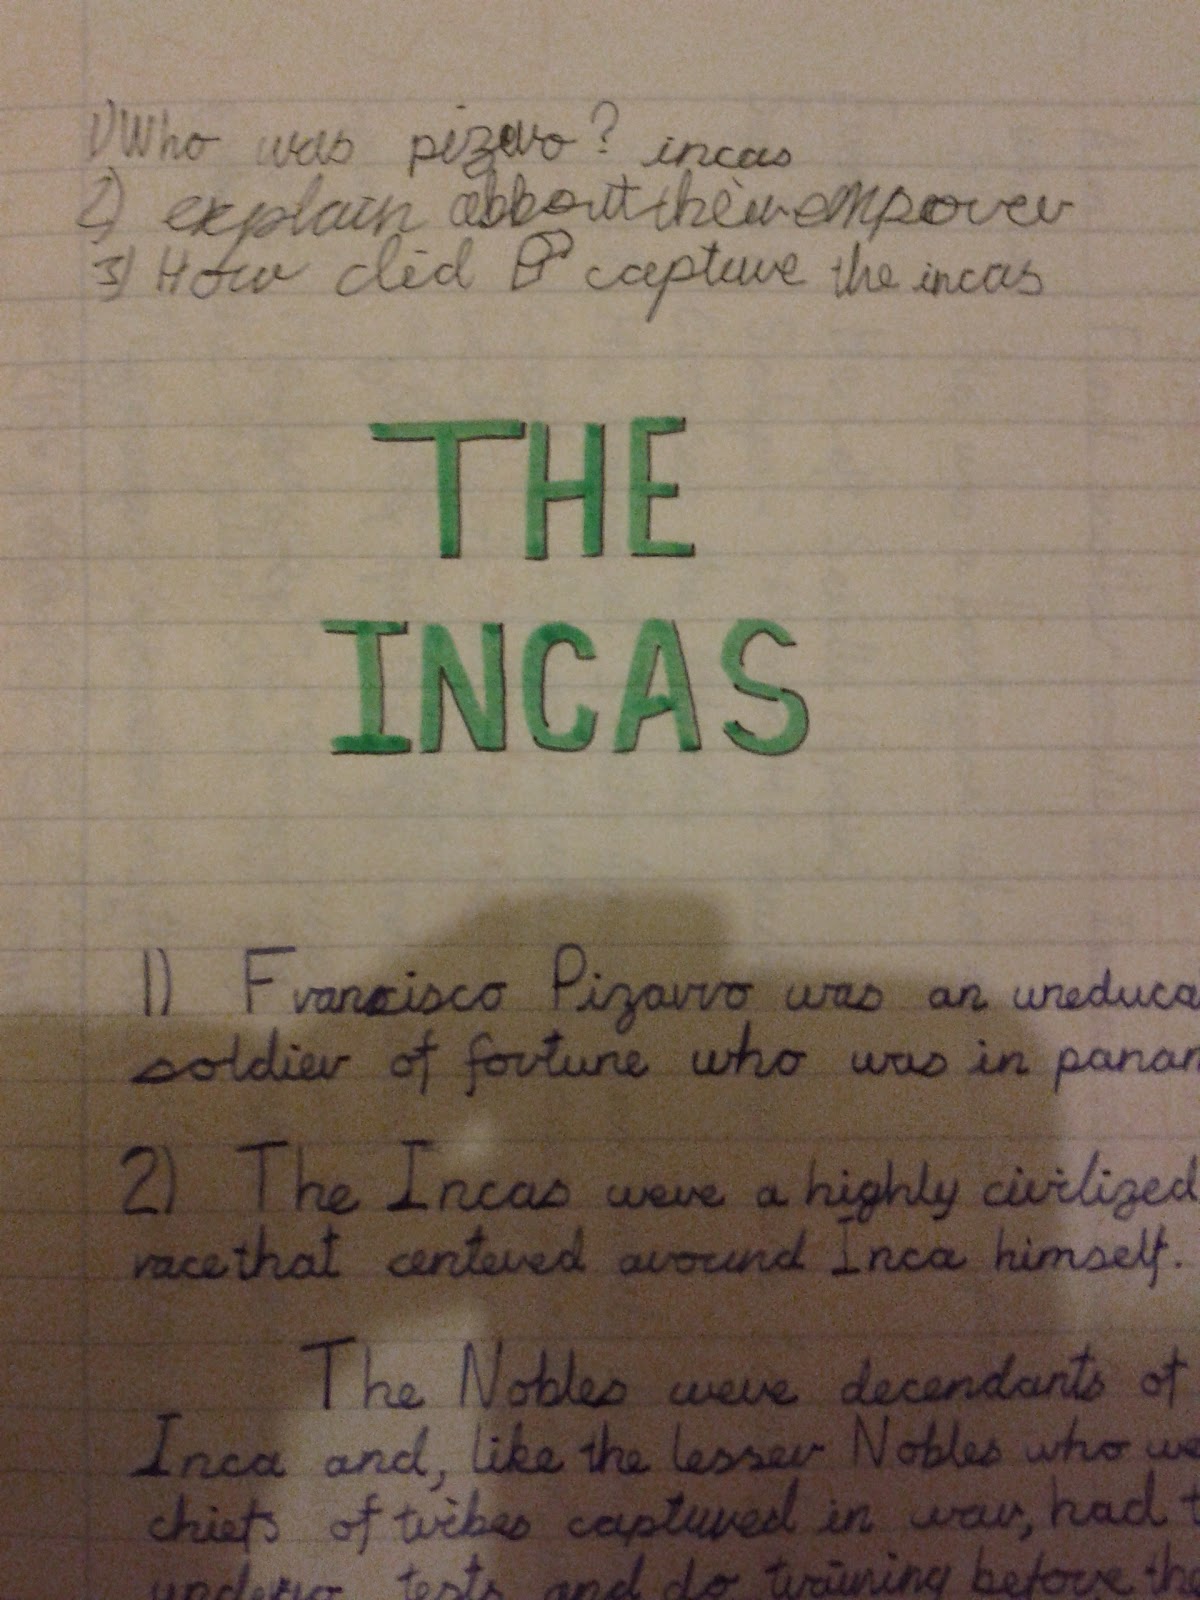 1) Who was pizarro? incas
2) explain abbout their emperer
3) How did P capture the incas
THE
INCAS
1) Francisco Pizarro was an uneduca
soldier of fortune who was in panam
2) The Incas were a highly civilized
race that centered around Inca himself.
The Nobles were decendants of
Inca and, like the lesser Nobles who we
chiefs of tribes captured in war, had t
undergo tests and do training before the